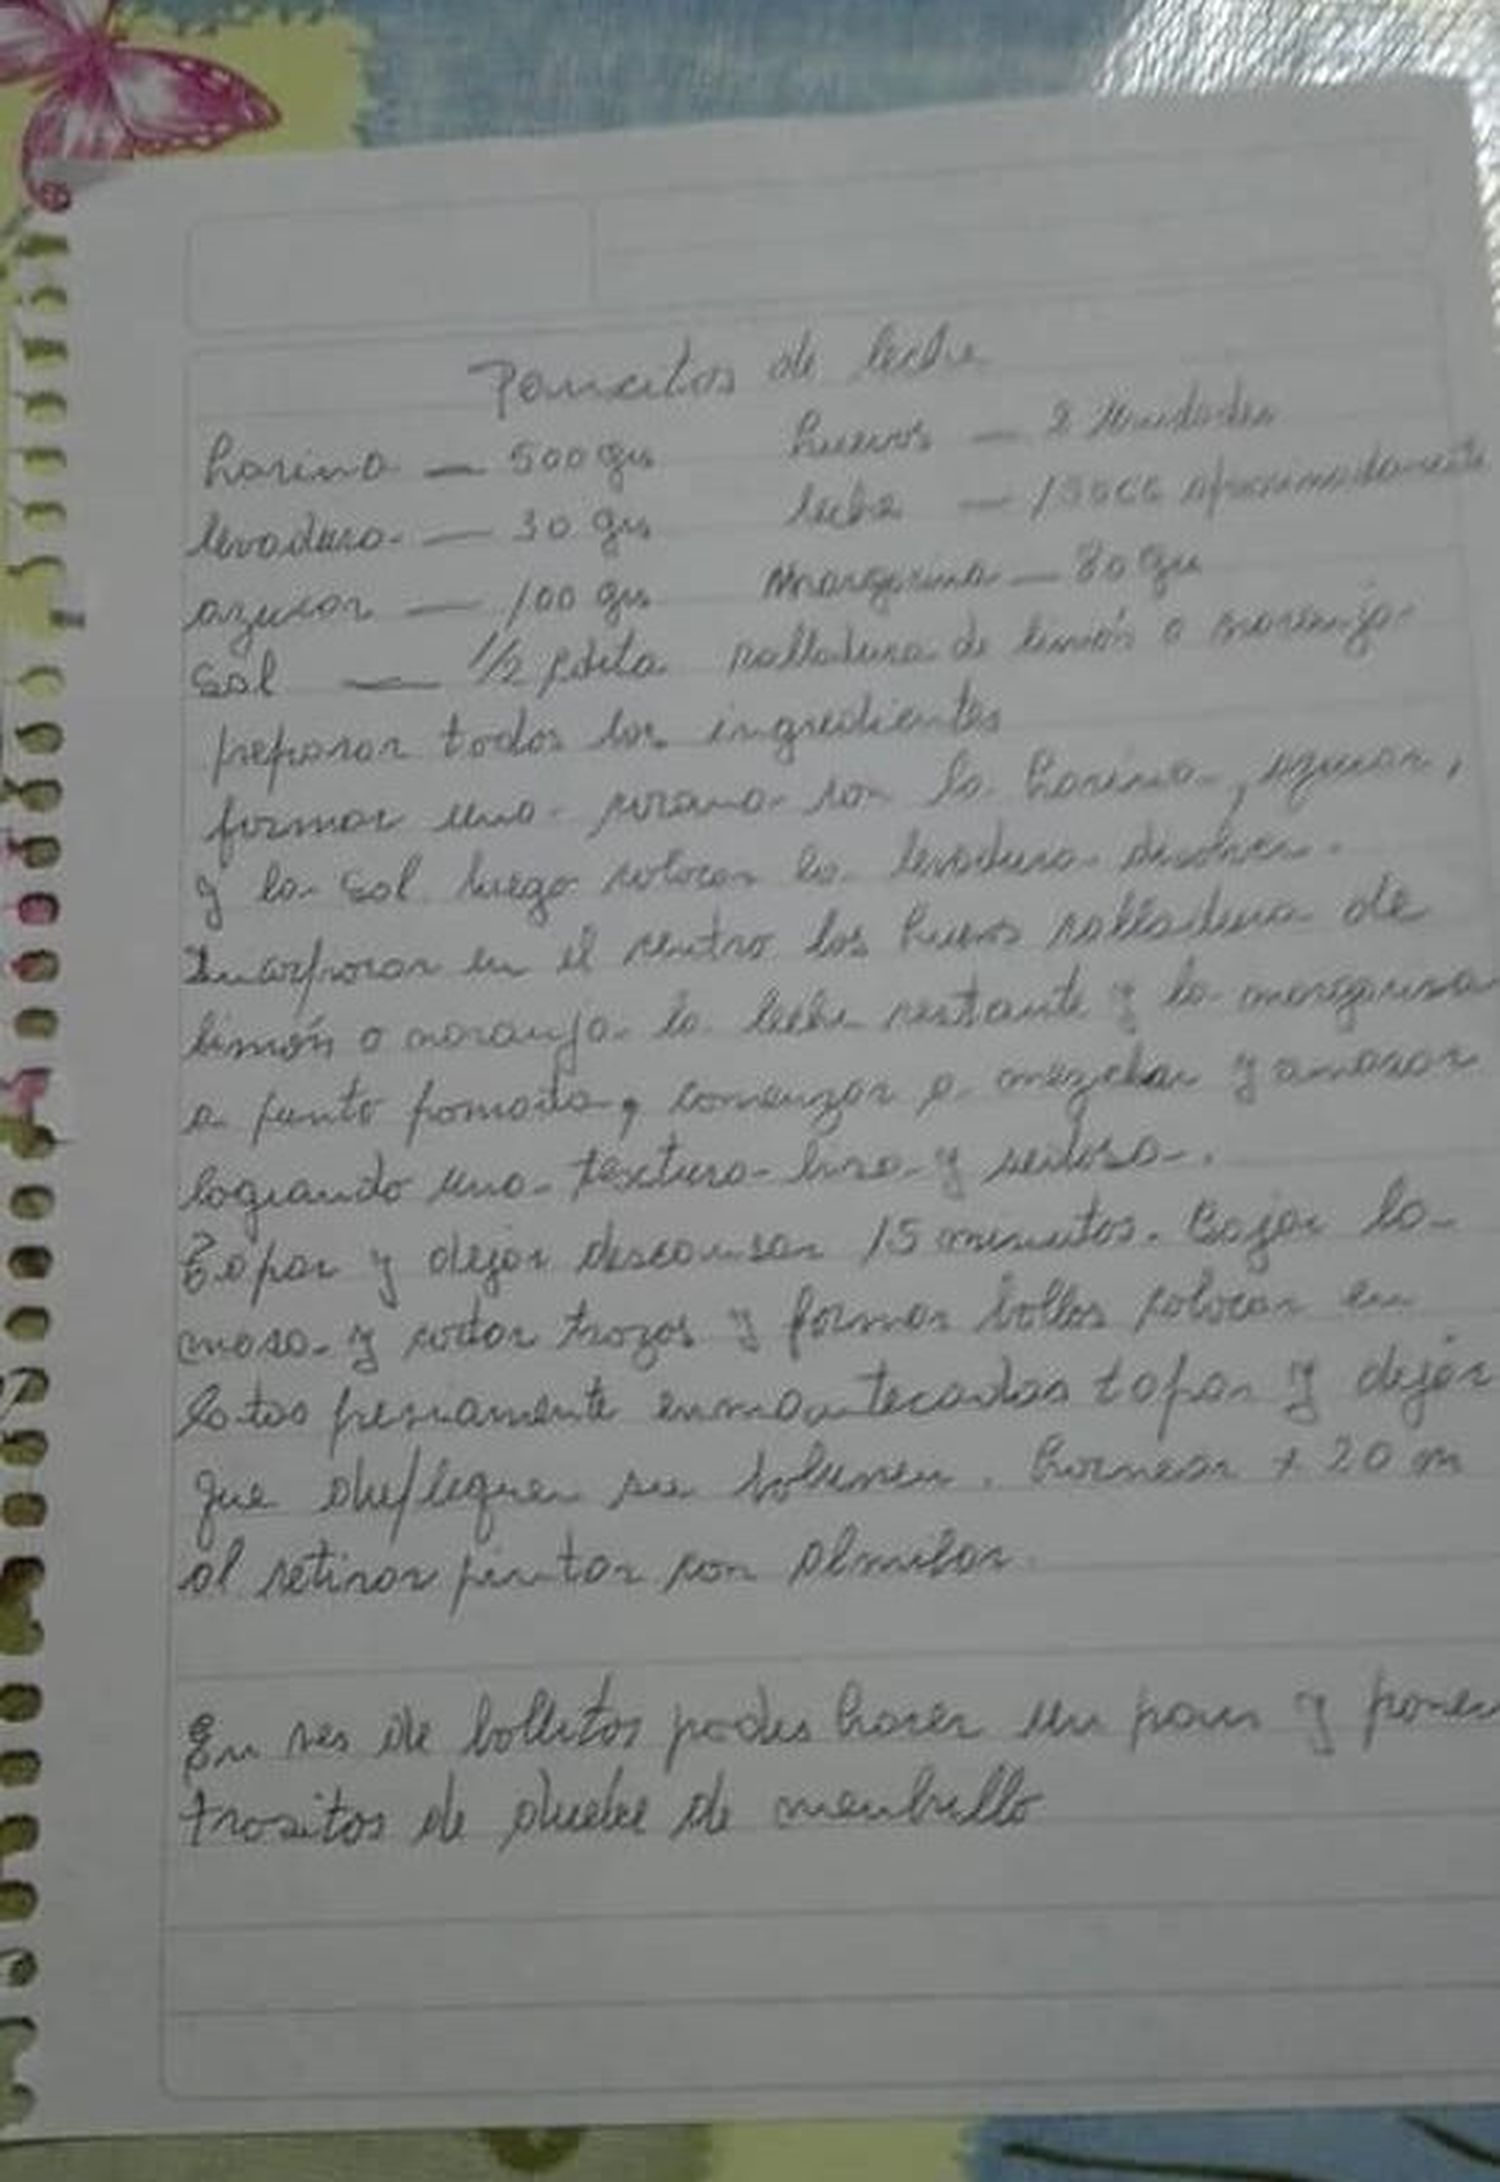 Pancitos de leche
harina — 500 grs huevos — 2 Unidades
levadura — 30 grs leche — 150cc aproximadamente
azucar — 100 grs Margarina — 80 grs
Sal — 1/2 cdita ralladura de limón o naranja
preparar todos los ingredientes
formar una corona con la harina, azucar,
y la sal luego colocar la levadura disolver.
Incorporar en el centro los huevos ralladura de
limón o naranja la leche restante y la margarina
a punto pomada, comenzar a mezclar y amasar
logrando una textura lisa y sedosa.
Tapar y dejar descansar 15 minutos. Bajar la
masa y cortar trozos y formar bollos colocar en
latas previamente enmantecadas tapar y dejar
que dupliquen su volumen. hornear + 20 m
al retirar pintar con almibar
En ves de bollitos podes hacer un pan y poner
trositos de dulce de membrillo